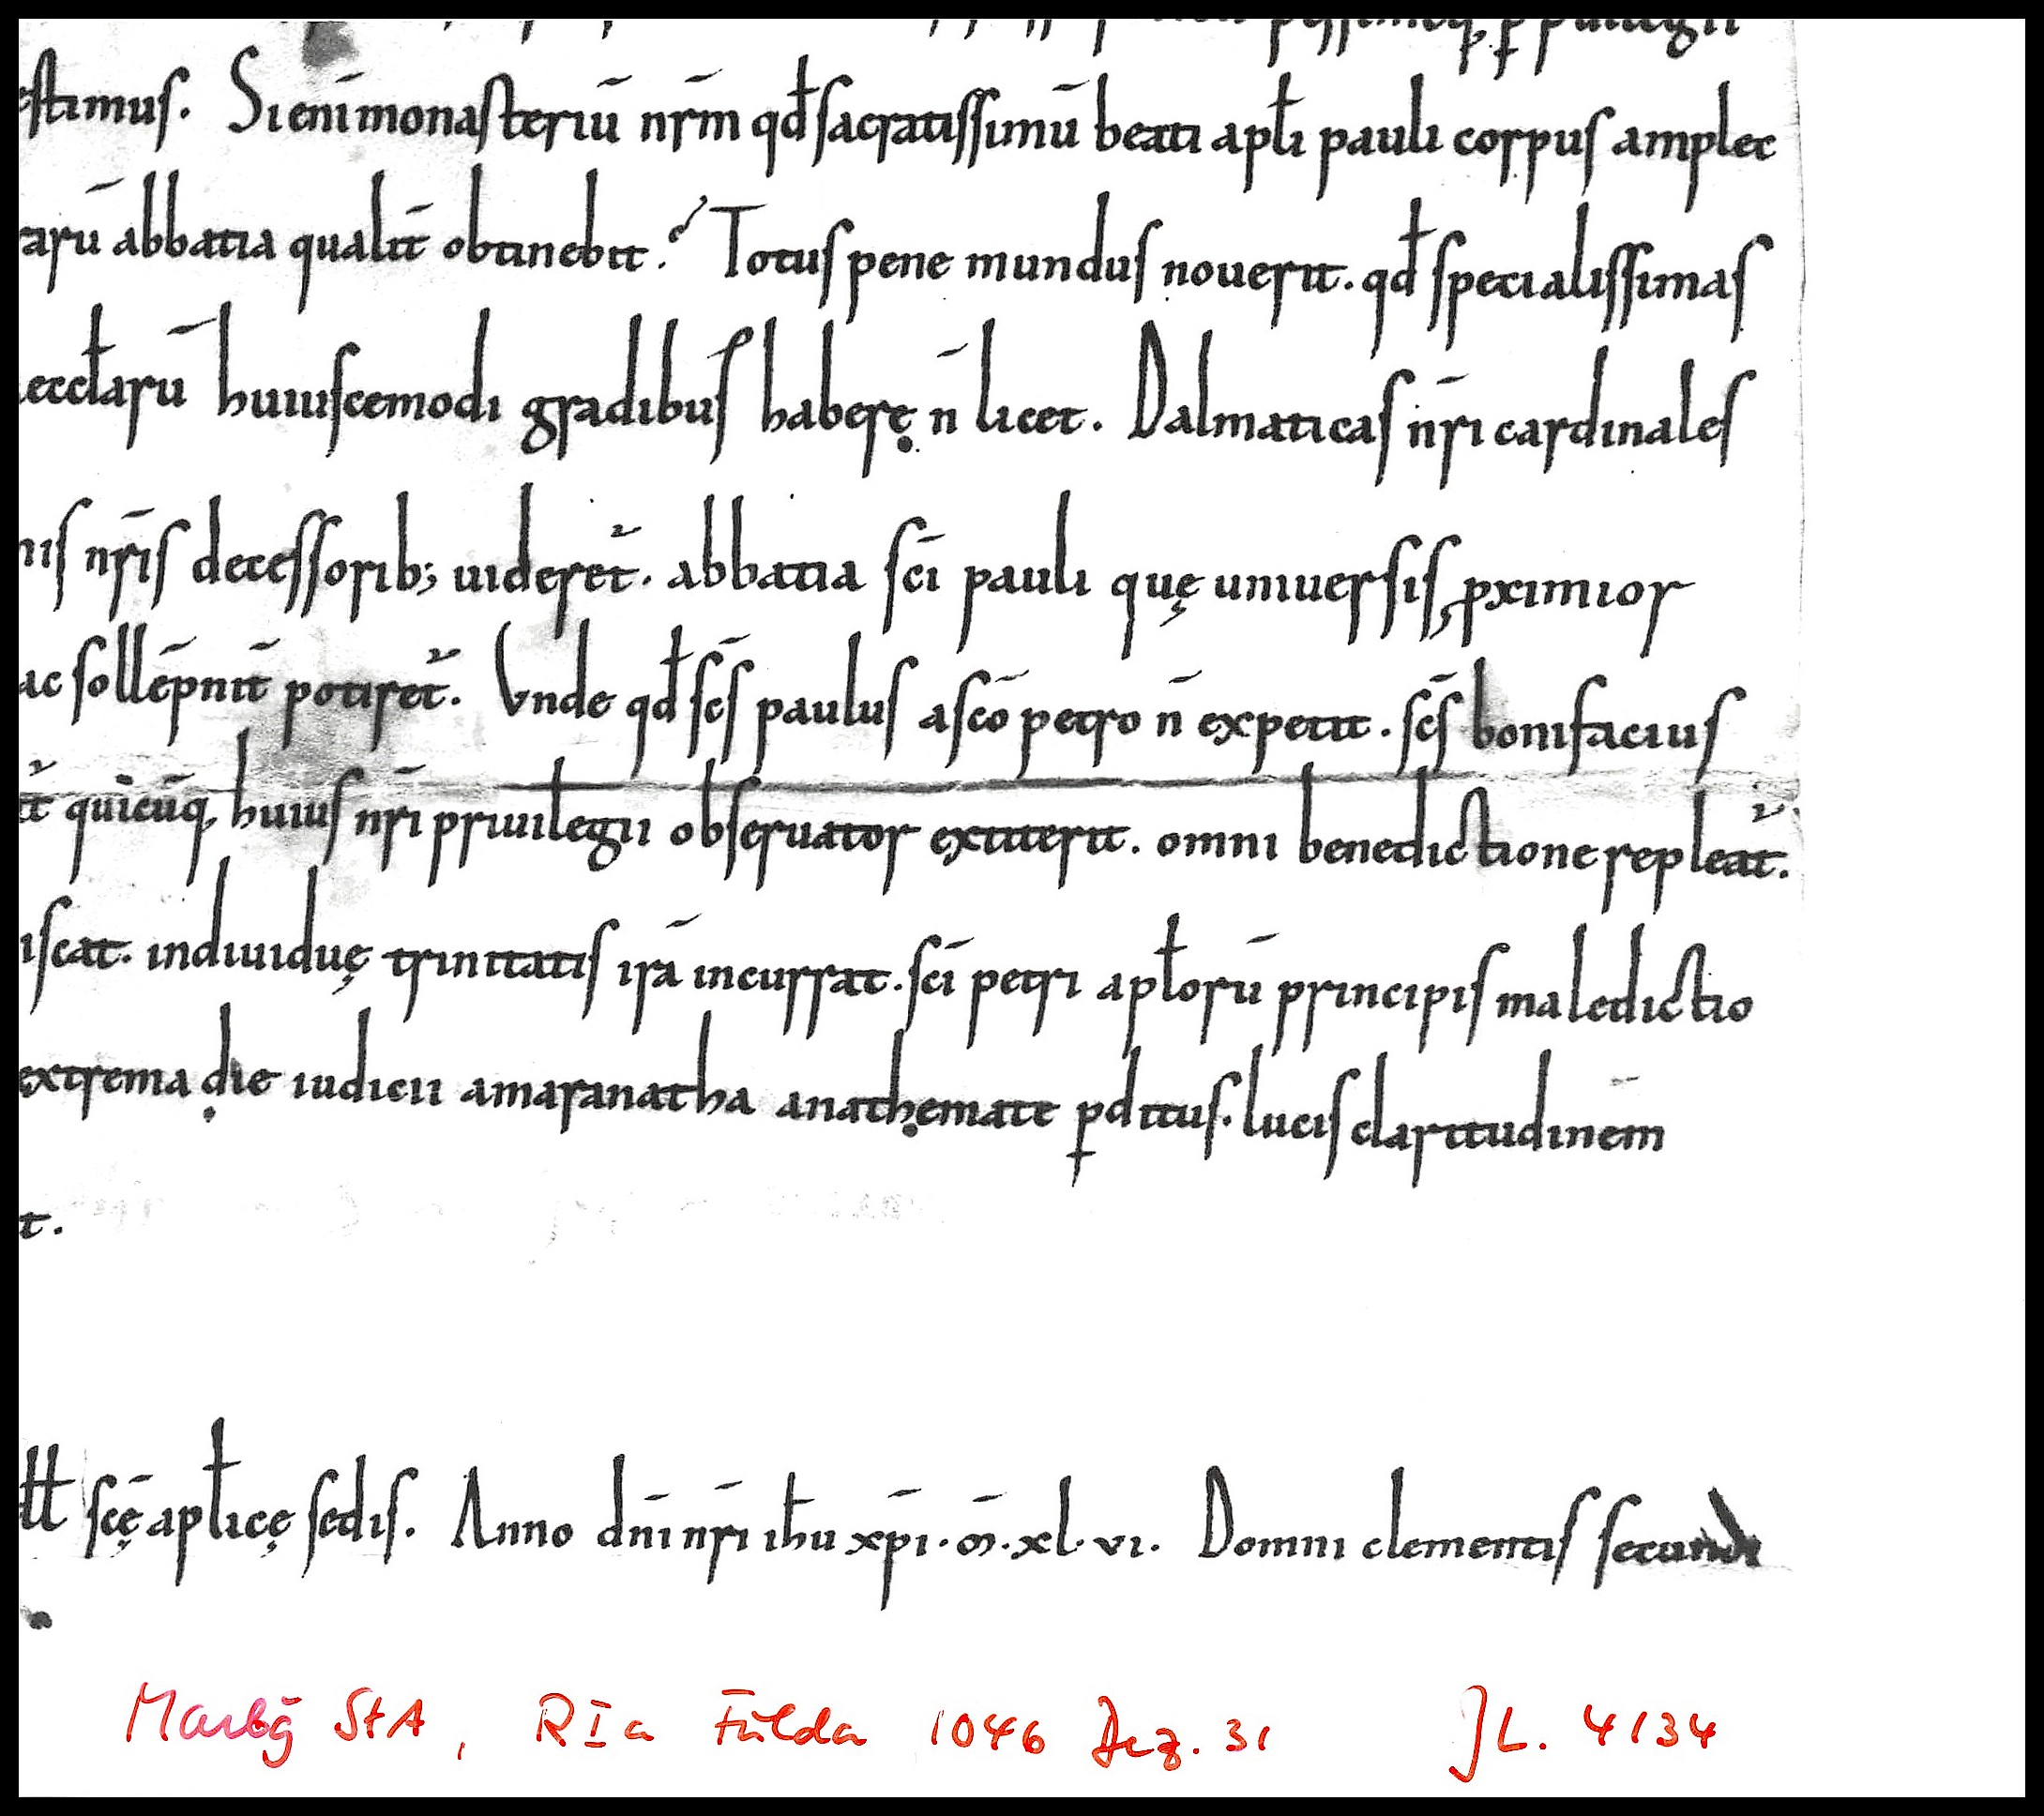 pessimeq; p puilegii
estimus. Si enī monasteriū nr̄m qđ sacratissimū beati apłi pauli corpus amplec
arū abbatia qualit̄ obtinebit? Totus pene mundus nouerit. qđ specialissimas
eccłarū huiuscemodi gradibus haberę n̄ licet. Dalmaticas nr̄i cardinales
nis nr̄is decessorib; uideret̄. abbatia sc̄i pauli quę uniuersis, pximior
ac sollēpnit̄ potiret̄. Vnde qđ sc̄s paulus a sc̄o petro n̄ expetit. sc̄s bonifacius
t̄ quicūq, huius nr̄i priuilegii obseruator extiterit. omni benedictione repleat̄.
iscat. indiuiduę trinitatis irā incurrat. sc̄i petri apłorū principis maledictio
extrema die iudicii amaranatha anathemate pditus. lucis claritudinem
t.
łł sc̄ę apłicę sedis. Anno dn̄i nr̄i ihu xp̄i. m̄. xl. vi. Domni clementis secundi
Marbg StA, R I a Fulda 1046 Dez. 31 JL. 4134